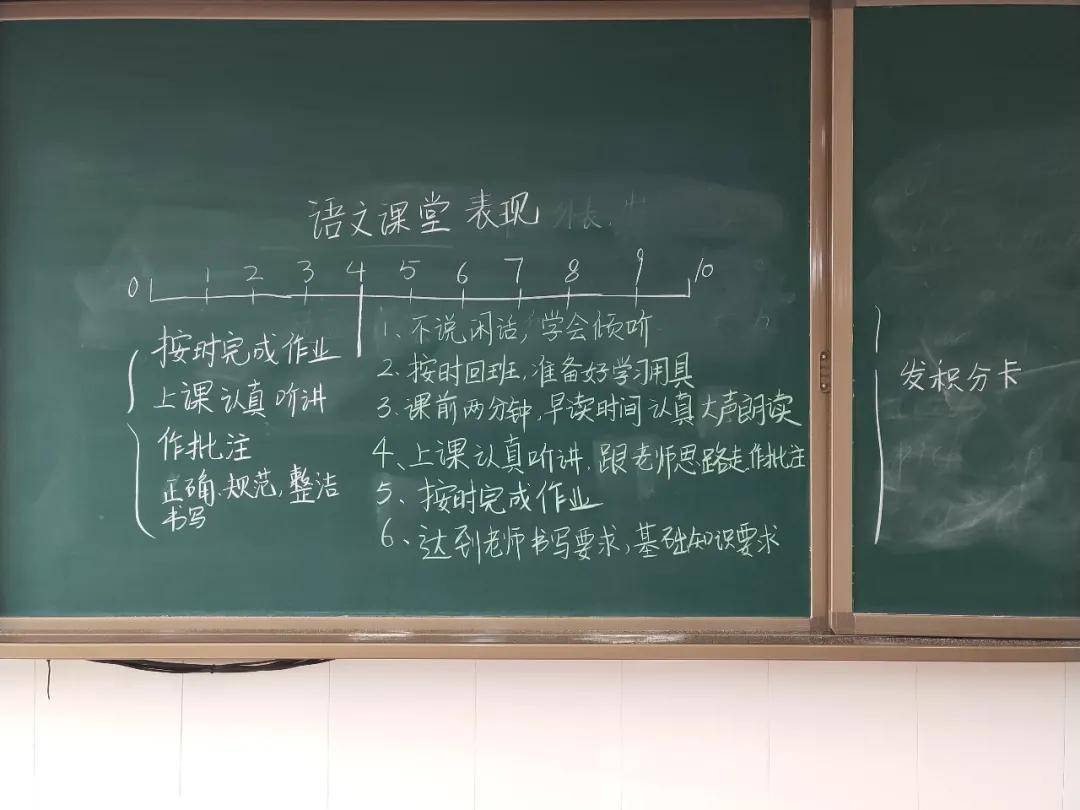 语文课堂表现
0 1 2 3 4 5 6 7 8 9 10
按时完成作业
上课认真听讲
作批注
正确、规范,整洁
书写
1、不说闲话,学会倾听
2、按时回班,准备好学习用具
3、课前两分钟,早读时间认真大声朗读
4、上课认真听讲,跟老师思路走作批注
5、按时完成作业
6、达到老师书写要求,基础知识要求
发积分卡